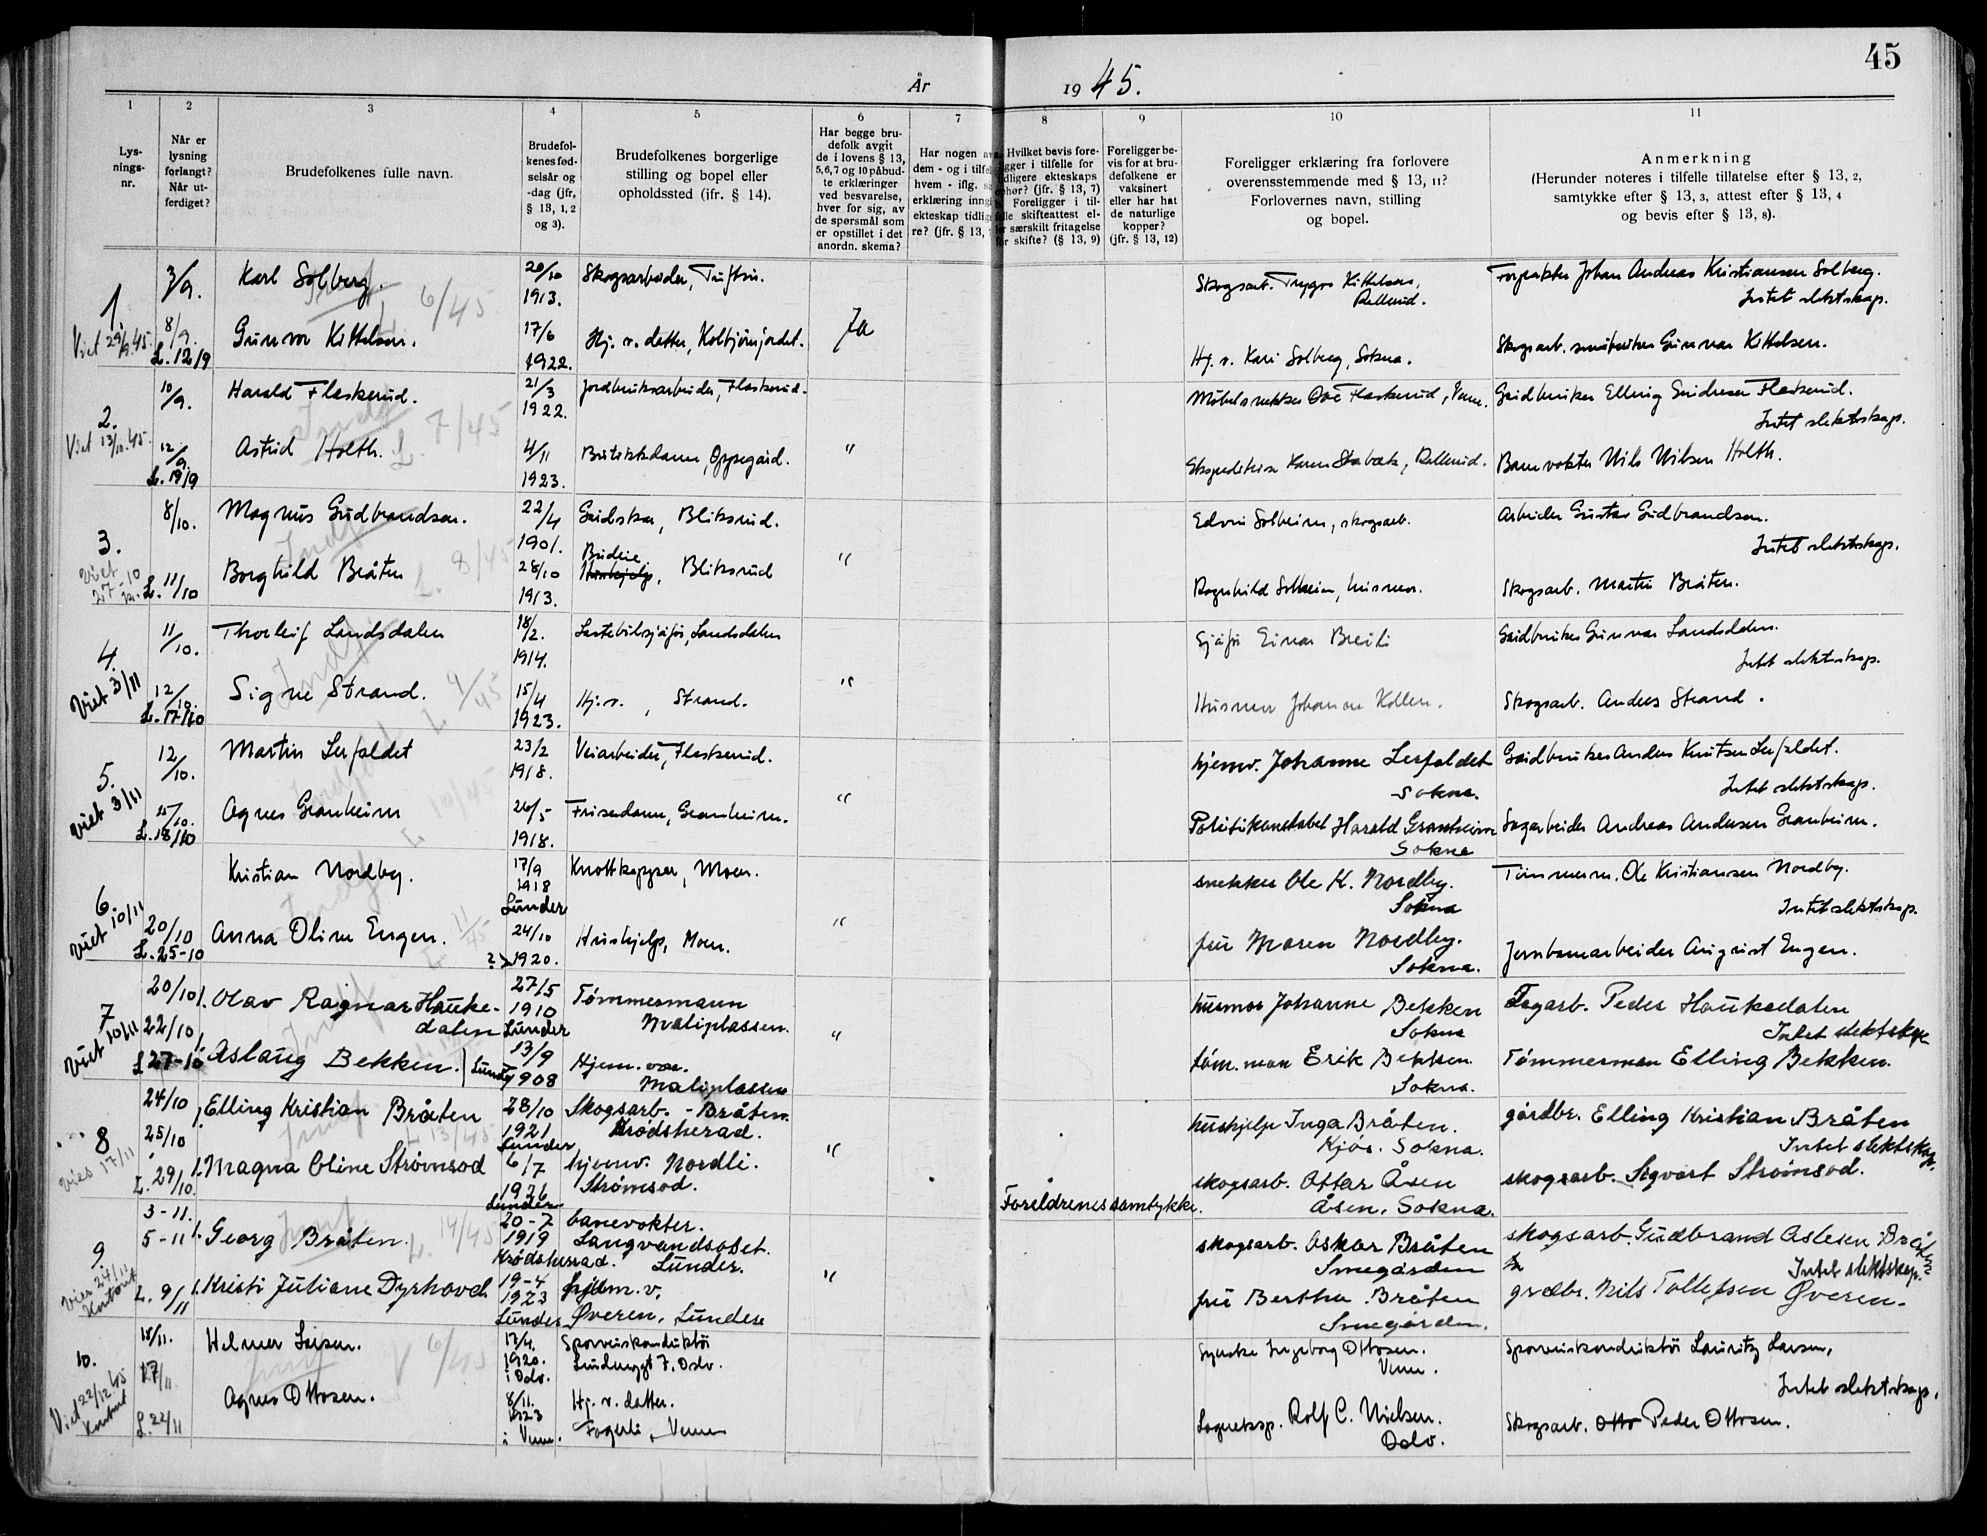 45
År 1945.
1
2
3
4
5
6
7
8
9
10
11
Lys-
nings-
nr.
Når er
lysning
forlangt?
Når ut-
ferdiget?
Brudefolkenes fulle navn.
Brudefol-
kenes fød-
selsår og
-dag (jfr,
§ 13, 1, 2
og 3).
Brudefolkenes borgerlige
stilling og bopel eller
opholdssted (jfr. § 14).
Har begge bru-
defolk avgit
de i lovens § 13,
5,6,7 og 10 påbud-
te erklæringer
ved besvarelse,
hver for sig, av
de spørsmål som
er opstillet i det
anordn. skema?
Har nogen av
dem - og i tilfel
hvem - iflg.
erklæring inngå
ekteskap tidlig
re? (jfr. § 13,
Hvilket bevis fore-
ligger i tilfelle for
tidligere ekteskaps
ophør? (jfr. § 13, 7)
Foreligger i til-
felle skifteattest el-
ler særskilt fritagelse
for skifte? (§ 13, 9)
Foreligger be-
vis for at bru-
defolkene er
vaksinert
eller har hat
de naturlige
kopper?
(jfr. § 13, 12)
Foreligger erklæring fra forlovere
overensstemmende med § 13, 11?
Forlovernes navn, stilling
og bopel.
Anmerkning
(Herunder noteres i tilfelle tillatelse efter § 13, 2,
samtykke efter § 13, 3, attest efter § 13, 4
og bevis efter § 13, 8).
1
Viet 29/9.45.
3/9.
Karl Solberg.
6/45
20/10
1913.
Skogsarbeider,
Skogsarb. Trygve Kittelsen,
Rallerud.
Forpakter Johan Andreas Kristiansen Solberg.
Intet slektskap.
8/9.
L. 12/9
Gunvor Kittelsen.
17/6
1922.
Hj. v. datter, Kolbjørnjordet.
Ja
Hj. v. Kari Solberg, Sokna.
Skogsarb. småbruker Gunnar Kittelsen.
2.
Viet 13/10.45.
10/9.
Harald Flaskerud.
L. 7/45
21/3
1922.
Jordbruksarbeider, Flaskerud.
Møbelsnekker Ove Flaskerud, Veme.
Gårdbruker Elling Gudresen Flaskerud.
Intet slektskap.
12/9.
L. 19/9
Astrid Holth.
4/11
1923.
Butikkdame, Oppegård.
"
Ekspeditrise Karen Stabæk, Rallerud.
Banevokter Nils Nilsen Holth.
3.
Viet
27-10
8/10.
Magnus Gudbrandsen.
L. 8/45
22/4
1901.
Gårdskar, Bliksrud.
Edvin Solheim, skogsarb.
Arbeider Gustav Gudbrandsen.
Intet slektskap.
L. 11/10
Borghild Bråten
28/10
1913.
Budeie
Hushjelp, Bliksrud
"
Ragnhild Solheim, husmor.
Skogsarb. Martin Bråten.
4.
Viet 3/11
11/10.
Thorleif Landsdalen
L. 9/45
18/2.
1914.
Lastebilsjåfør, Landsdalen
Sjåfør Einar Breili
Gårdbruker Gunnar Landsdalen.
Intet slektskap.
12/10.
L. 17/10
Signe Strand.
15/4
1923.
Hj. v., Strand.
"
Husmor Johanne Kollen.
Skogsarb. Anders Strand.
5.
Viet 3/11
12/10.
Martin Lerfaldet
L. 10/45
23/2
1918.
Veiarbeider, Flaskerud.
hjemv. Johanne Lerfaldet
Sokna.
Gårdbruker Anders Knutsen Lerfaldet.
Intet slektskap.
15/10.
L. 18/10
Agnes Granheim
26/5
1918.
Frisørdame, Granheim.
"
Politikonstabel Harald Granheim
Sokna
Sagarbeider Andreas Andersen Granheim.
6.
Viet 10/11
Kristian Nordby.
L. 11/45
17/9
1918
Lunder
Knottkapper, Moen.
snekker Ole K. Nordby.
Sokna
Tømmerm. Ole Kristiansen Nordby.
Intet slektskap.
20/10
L. 25-10
Anna Oline Engen.
24/10
?) 1920.
Hushjelp, Moen.
"
fru Maren Nordby.
Sokna.
Jernbanearbeider August Engen.
7
Viet 10/11
20/10
Olav Ragnar Hauke-
dalen
27/5
1910
Lunder
Tømmermann
Maliplassen.
husmor Johanne Bekken
Sokna
Sagarb. Peder Haukedalen
Intet slektskap
22/10
L 27-10
Aslaug Bekken.
Lunder
13/9
1908
Hjem. v.
Maliplassen
"
tøm.man Erik Bekken
Sokna.
Tømmerman Elling Bekken.
8
Vies 17/11
24/10
Elling Kristian Bråten
L 13/45
28/10
1921
Lunder
Skogsarb. - Bråten.
Krødsherad.
hushjelp Inga Bråten.
Kjør. Sokna.
gårdbr. Elling Kristian Bråten
Intet slektskap.
25/10
L. 29/10.
Magna Oline Strømsod
6/7
1926
Lunder
hjemv. Nordli.
Strømsod.
"
Foreldrenes samtykke.
skogsarb. Ottar Åsen
Åsen, Sokna.
skogsarb. Sigvart Strømsod.
9.
Vies 24/11
Kontoret
3-11.
5-11
Georg Bråten.
L. 14/45
20-7
1919
Krødsherad.
banevokter.
Langvandsoset.
Lunder.
skogsarb. Oskar Bråten
Smegården
skogsarb. Gudbrand Aslesen Bråten
Intet slektskap.
L. 9/11
Kristi Juliane Dyrhovd
19-4
1923
Lunder
hjem. v.
Øveren, Lunder
"
fru Bertha Bråten
Smegården.
grdbr. Nils Tollefsen Øveren.
10.
Viet 22/12 45
Kontoret
15/11.
Helmer Larsen.
6/45
17/4.
1920.
i Oslo.
Sporveiskonduktør
Oslo.
Syerske Ingeborg Ottosen.
Veme.
Sporveiskonduktør Lauritz Larsen,
Intet slektskap.
17/11
L. 22/11
Agnes Ottosen.
8/11.
1923
i Veme.
Hj. v. datter.
Fagerli, Veme
Rolf C. Nielsen.
Oslo.
Skogsarb. Otto Peder Ottosen.